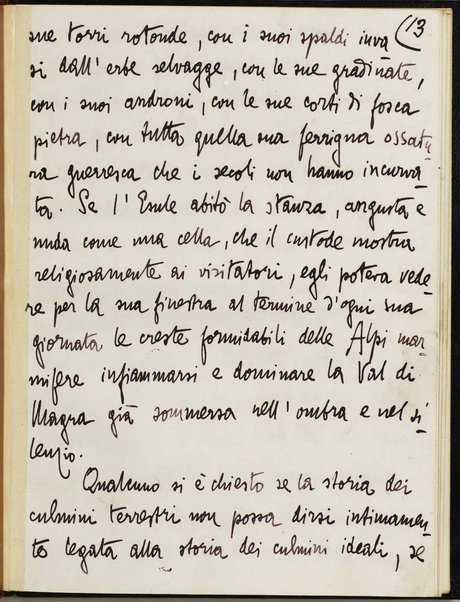 (13
sue torri rotonde, con i suoi spaldi inva
si dall'erbe selvagge, con le sue gradinate,
con i suoi androni, con le sue corti di fosca
pietra, con tutta quella sua ferrigna ossatu
ra guerresca che i secoli non hanno incurva
ta. Se l'Esule abitò la stanza, angusta e
nuda come una cella, che il custode mostra
religiosamente ai visitatori, egli poteva vede
re per la sua finestra al termine d'ogni sua
giornata le creste formidabili delle Alpi mar
mifere infiammarsi e dominare la Val di
Magra già sommersa nell'ombra e nel si
lenzio.
Qualcuno si è chiesto se la storia dei
culmini terrestri non possa dirsi intimamen
te legata alla storia dei culmini ideali, se